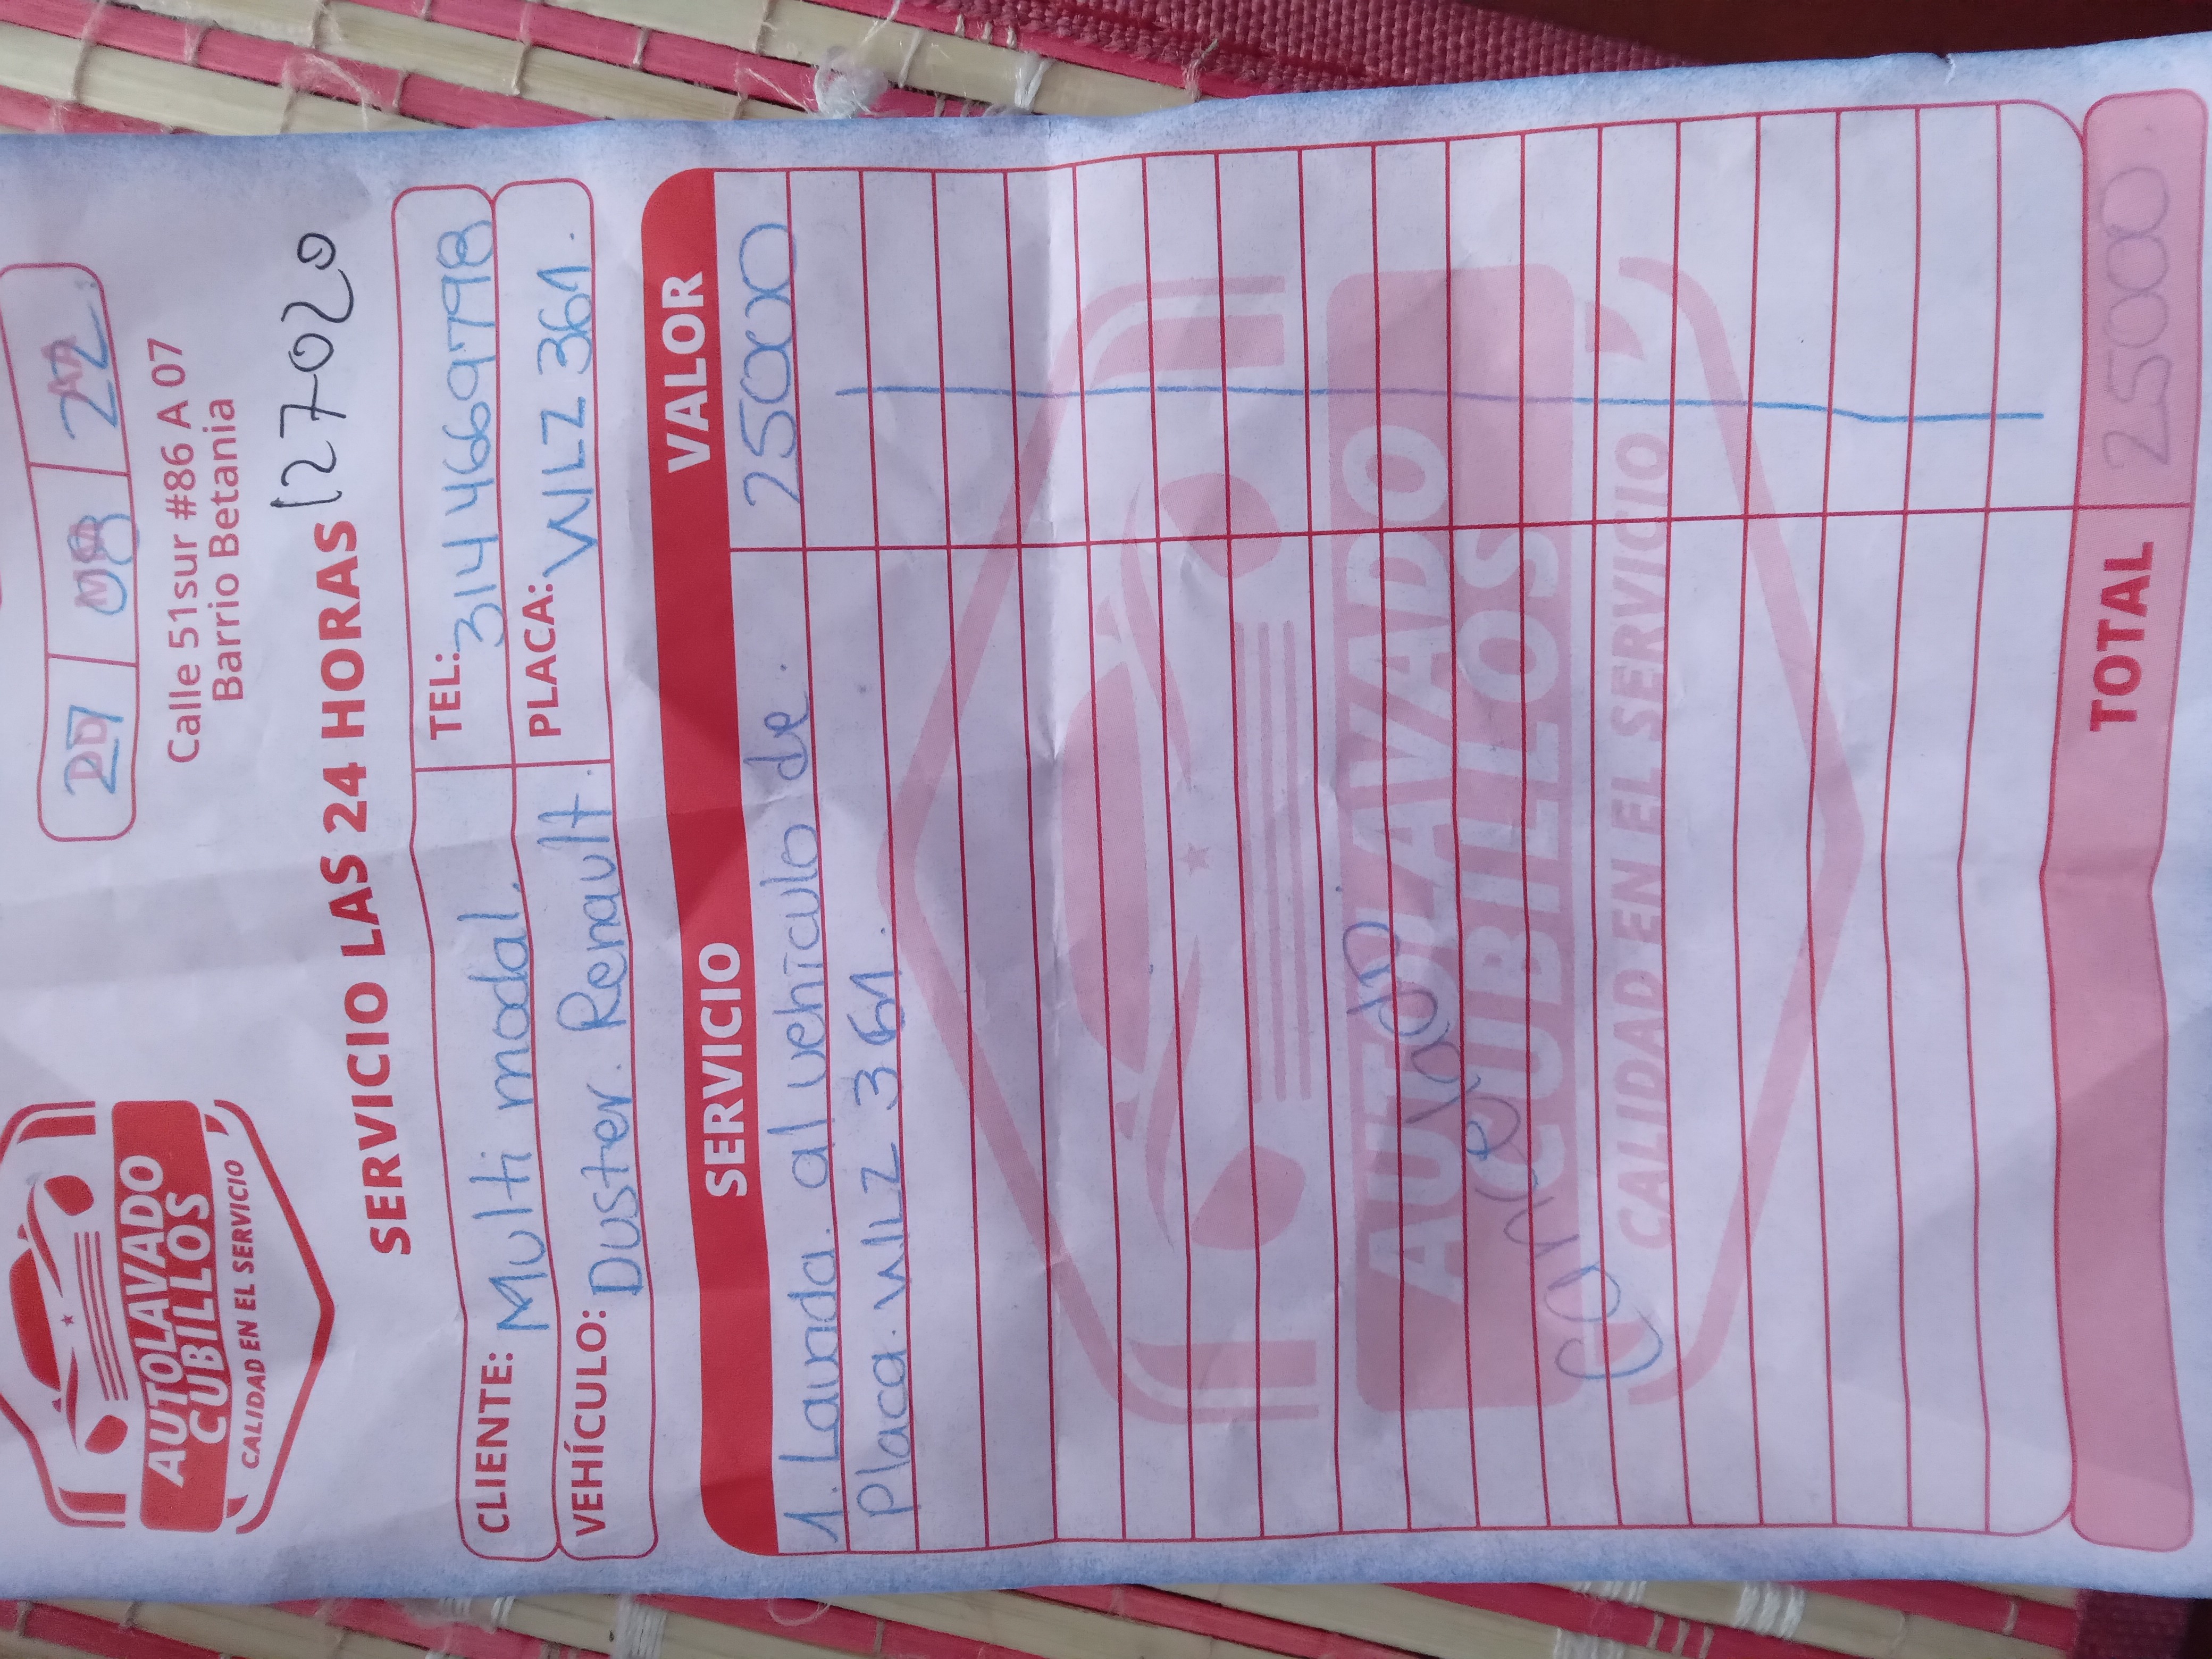 AUTOLAVADO
CUBILLOS
CALIDAD EN EL SERVICIO
27 08 22
Calle 51sur #86 A 07
Barrio Betania
SERVICIO LAS 24 HORAS
127020
CLIENTE: Multi modal. TEL: 3144669798
VEHÍCULO: Duster. Renault. PLACA: WLZ 361.
SERVICIO VALOR
1. Lavada. al vehiculo de. 25000
Placa. WLZ 361.
AUTOLAVADO
CUBILLOS
CALIDAD EN EL SERVICIO
Cancelado
TOTAL 25000